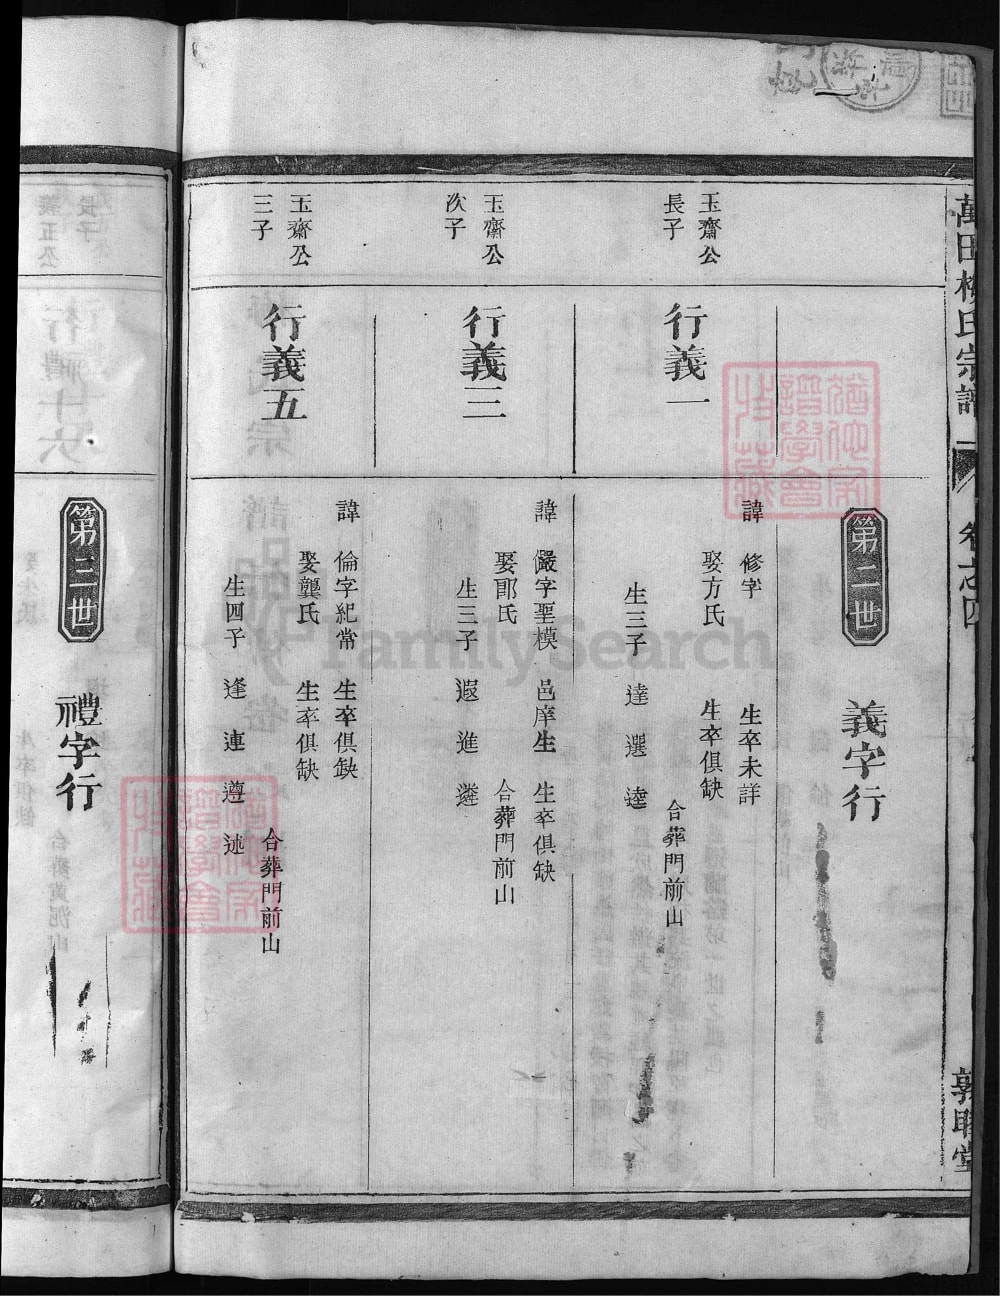 第二世 義字行
玉齋公
長子
行義一
諱 修字 生卒未詳
娶方氏 生卒俱缺 合葬門前山
生三子 達 選 逵
玉齋公
次子
行義三
諱 儼字聖模 邑庠生 生卒俱缺
娶郎氏 合葬門前山
生三子 遐 進 遴
玉齋公
三子
行義五
諱 倫字紀常 生卒俱缺
娶龔氏 生卒俱缺 合葬門前山
生四子 逢 連 遵 述
第三世 禮字行
FamilySearch